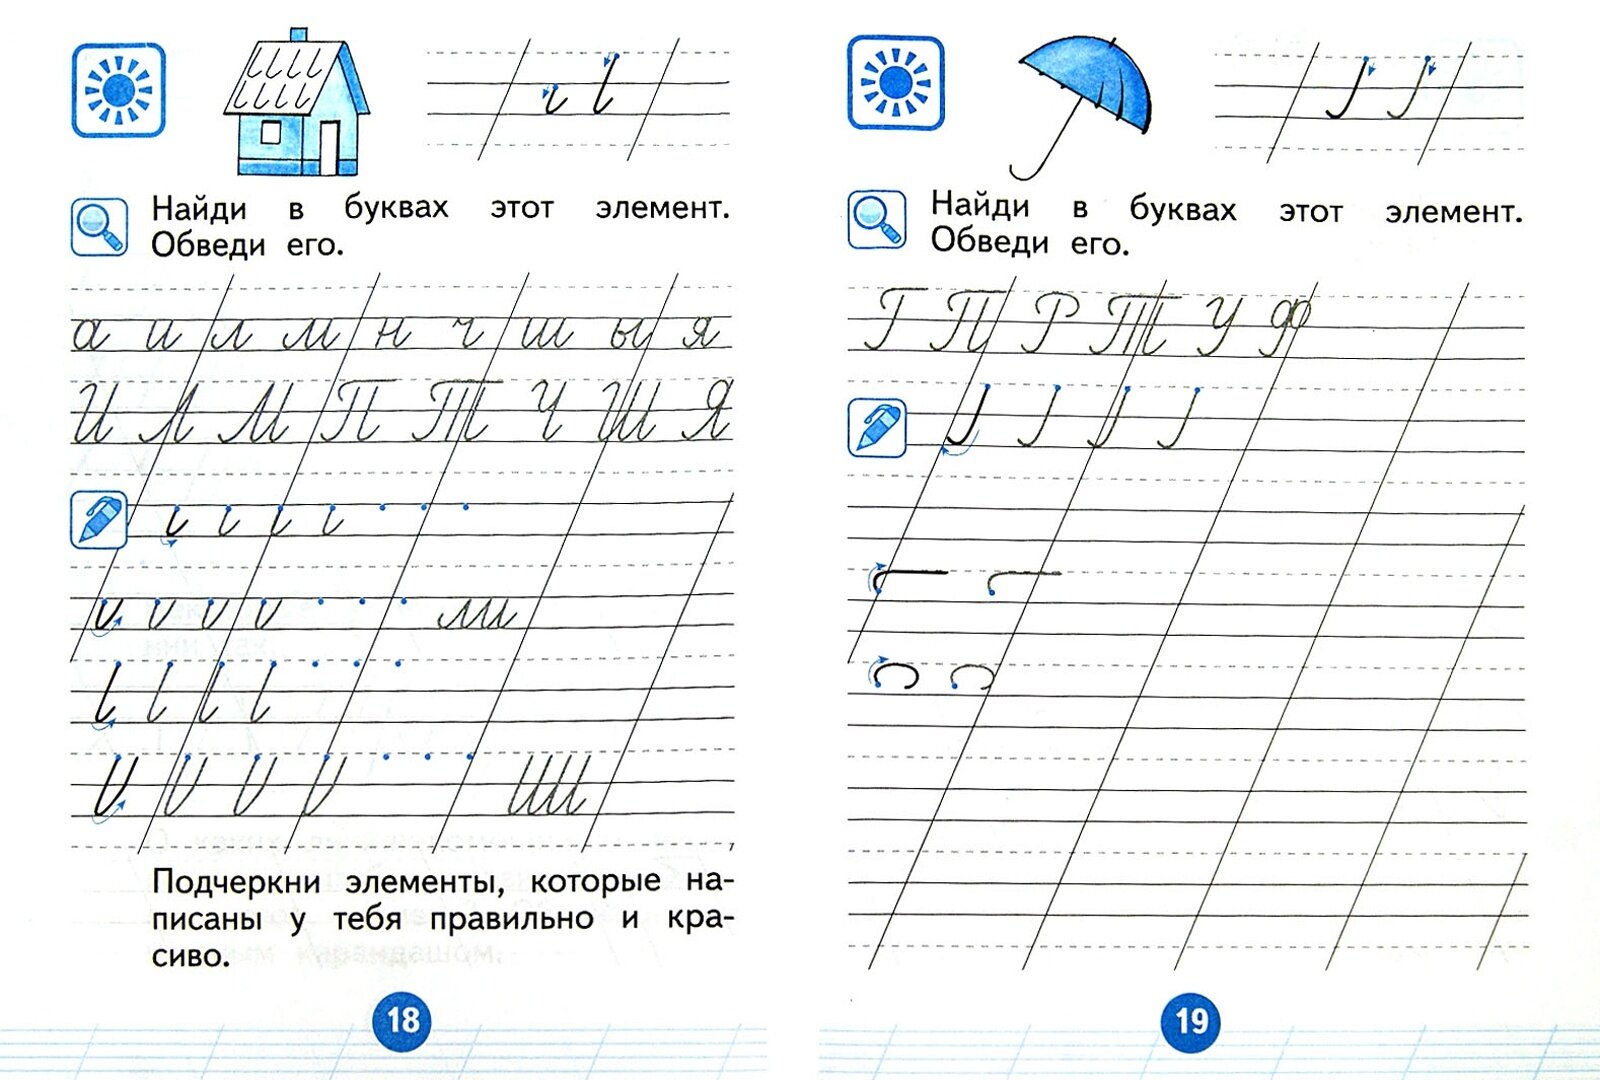 Найди в буквах этот элемент.
Обведи его.
а и л м н ч ш ы я
И Л М П Т Ч Ш Я
Подчеркни элементы, которые на-
писаны у тебя правильно и кра-
сиво.
18
Найди в буквах этот элемент.
Обведи его.
Г П Р Т У Ф
19